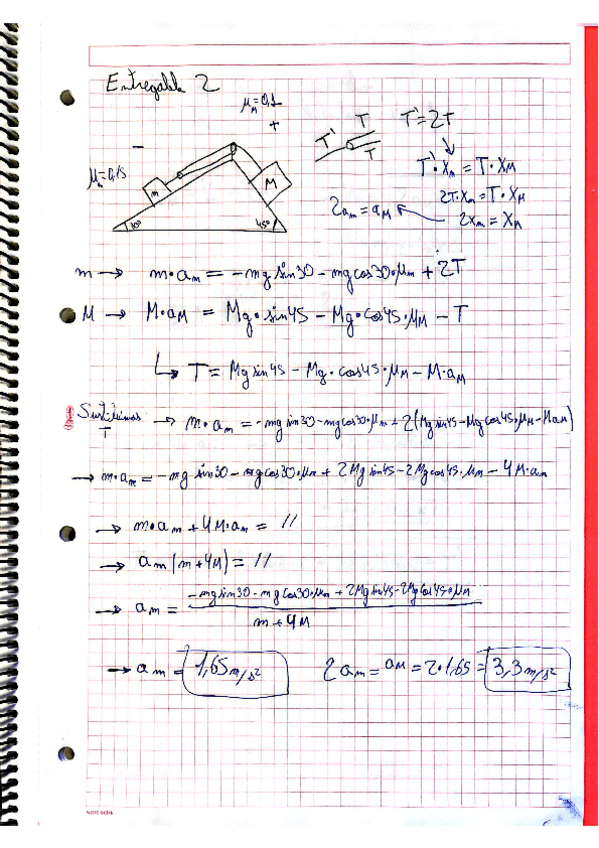 Entregable 2
μM=0,1
+
T' T T T'=2T
−
μm=0,15 m M T'·Xm = T·XM
2T·Xm = T·XM
30° 45° 2am = aM 2Xm = XM
m → m·am = -mg sin30 - mg cos30·μm + 2T
M → M·aM = Mg·sin45 - Mg·cos45·μM - T
↳ T = Mg sin45 - Mg·cos45·μM - M·aM
Sustituimos T → m·am = -mg sin30 - mg cos30·μm + 2(Mg sin45 - Mg cos45·μM - MaM)
→ m·am = -mg sin30 - mg cos30·μm + 2Mg sin45 - 2Mg cos45·μM - 4M·am
→ m·am + 4M·am = //
→ am(m+4M) = //
→ am = -mg sin30 - mg cos30·μm + 2Mg sin45 - 2Mg cos45·μM
m+4M
→ am = 1,65 m/s² 2am = aM = 2·1,65 = 3,3 m/s²